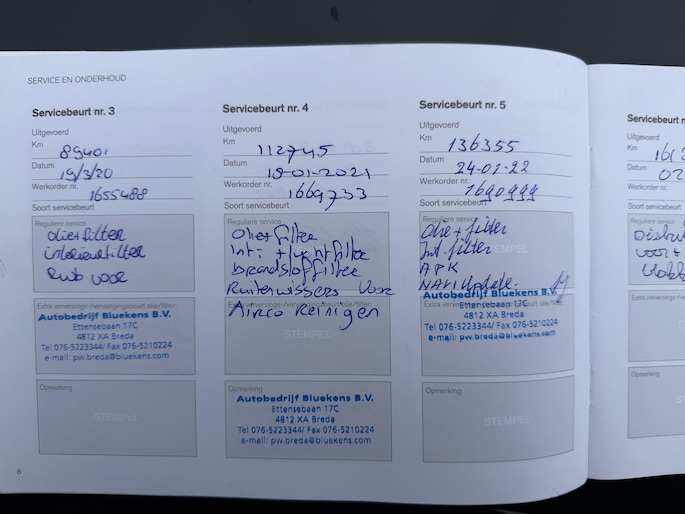 SERVICE EN ONDERHOUD
Servicebeurt nr. 3
Uitgevoerd
Km 89401
Datum 19/3/20
Werkorder nr. 1655488
Soort servicebeurt
Reguliere service
oliefilter
interieurfilter
Ruw voor
Extra verversings-/vervangingsbeurt olie/filter:
Autobedrijf Bluekens B.V.
Ettensebaan 17C
4812 XA Breda
Tel 076-5223344/ Fax 076-5210224
e-mail: pw.breda@bluekens.com
Opmerking
STEMPEL
8
Servicebeurt nr. 4
Uitgevoerd
Km 112745
Datum 18-01-2021
Werkorder nr. 1669733
Soort servicebeurt
Reguliere service
Olie+filter
Int. + lucht filter
brandstoffilter
Ruitenwissers voor
Extra verversings-/vervangingsbeurt olie/filter:
Airco Reinigen
STEMPEL
Opmerking
Autobedrijf Bluekens B.V.
Ettensebaan 17C
4812 XA Breda
Tel 076-5223344/ Fax 076-5210224
e-mail: pw.breda@bluekens.com
Servicebeurt nr. 5
Uitgevoerd
Km 136355
Datum 24-01-22
Werkorder nr. 1690999
Soort servicebeurt
Reguliere service
Olie + filter
Int. filter
STEMPEL
APK
NAVI Update.
Extra verversings-/vervangingsbeurt olie/filter:
Autobedrijf Bluekens B.V.
Ettensebaan 17C
4812 XA Breda
Tel 076-5223344/ Fax 076-5210224
e-mail: pw.breda@bluekens.com
Opmerking
STEMPEL
Servicebeurt n
Uitgevoerd
Km
Datum
Werkorder nr.
Soort servicebeurt
Reguliere
voor +
Extra ver
Opmerking